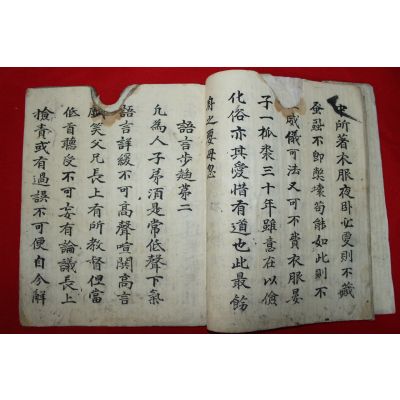 所著衣服夜卧必更則不藏
蚤蝨不即弊壞苟能如此則不
威儀可法又可不費衣服晏
子一狐裘三十年雖意在以儉
化俗亦其愛惜有道也此最飭
身之要毋忽
語言步趨第二
凡為人子弟須是常低聲下氣
語言詳緩不可高聲喧鬨高言
戲笑父兄長上有所教督但當
低首聽受不可妄有論議長上
檢責或有過誤不可便自分解